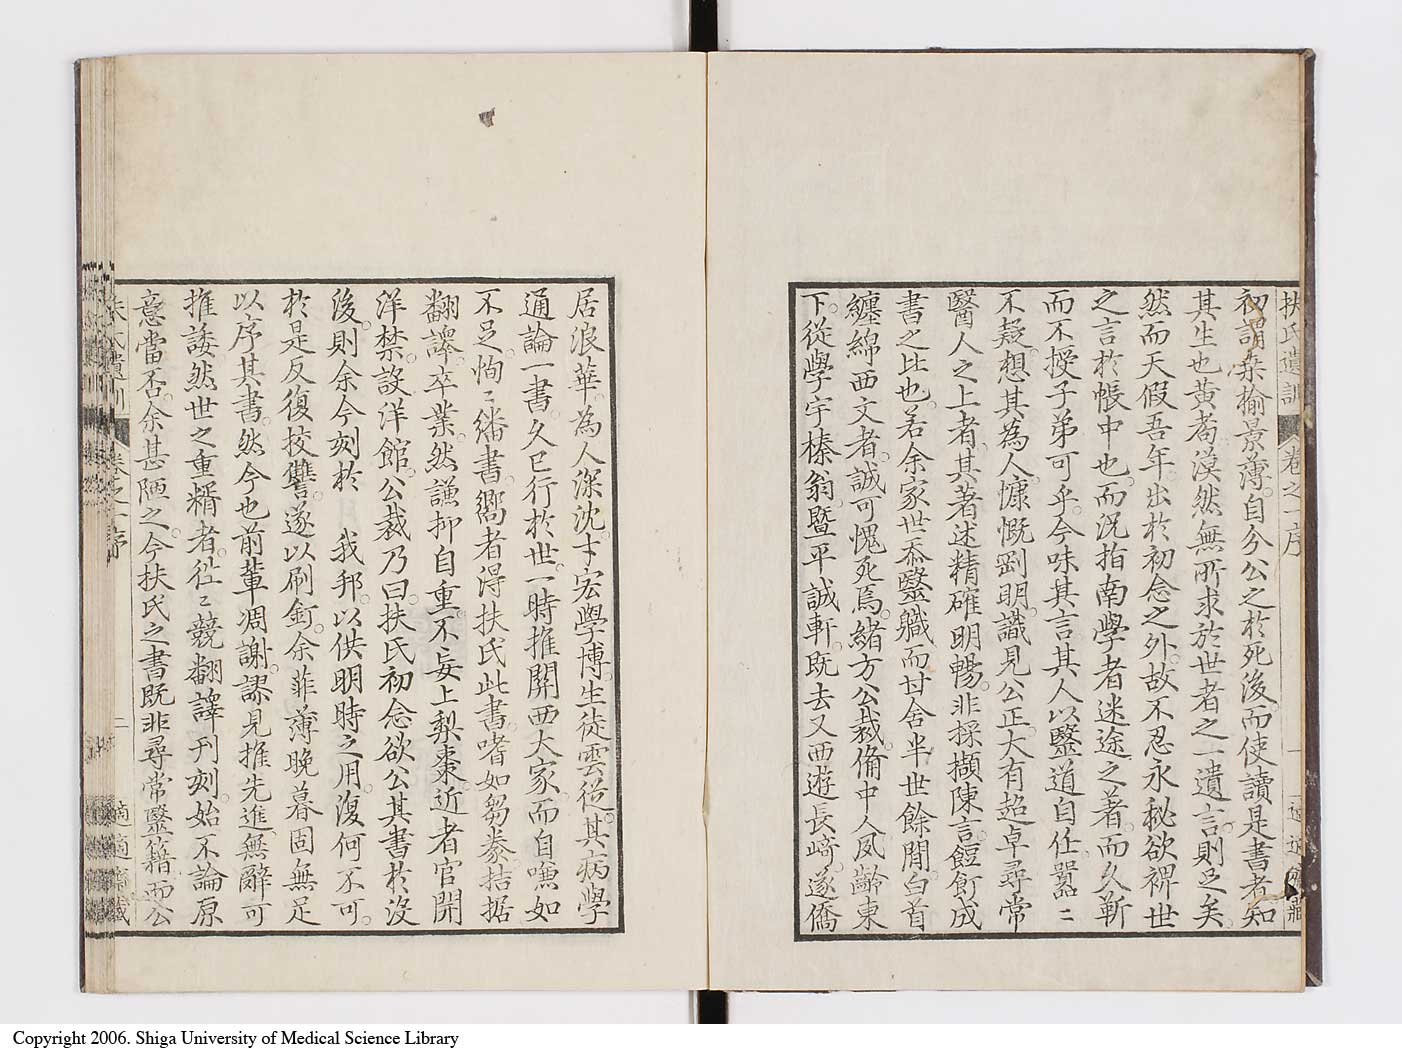 扶氏遺訓 卷之一序 一 適適齋藏
初謂桑楡景薄。自分公之於死後而使讀是書者知
其生也黄耈漠然無所求於世者之一遺言。則足矣。
然而天假吾年。出於初念之外。故不忍永秘欲裨世
之言於帳中也。而況指南學者迷途之著而久靳
而不授子弟可乎。今味其言其人以毉道自任。囂〻
不疑。想其為人。慷慨剛明。識見公正。大有超卓尋常
醫人之上者。其著述精確明暢。非採擷陳言。饾飣成
書之比也。若余家世忝毉職而甘舍半世餘閒。白首
纏綿西文者。誠可愧死焉。緒方公裁。備中人。夙齡東
下。從學宇榛翁。暨平誠軒。既去又西遊長崎。遂僑
居浪華。為人深沈。才宏學博。生徒雲從。其病學
通論一書久已行於世。一時推關西大家。而自嗛如
不足恂〻繙書。嚮者得扶氏此書。嗜如芻豢。拮据
翻譯。卒業。然謙抑自重。不妄上梨棗。近者官開
洋禁。設洋館。公裁乃曰。扶氏初念欲公其書於沒
後。則余今刻於 我邦。以供明時之用。復何不可。
於是反復挍讐。遂以刷釘。余菲薄晩暮固無足
以序其書。然今也前輩凋謝。謬見推先進無辭可
推諉然世之重糈者。往〻競翻譯刊刻。始不論原
意當否。余甚陋之。今扶氏之書既非尋常毉籍。而公
扶氏遺訓 卷之一序 二 適適齋藏
Copyright 2006. Shiga University of Medical Science Library